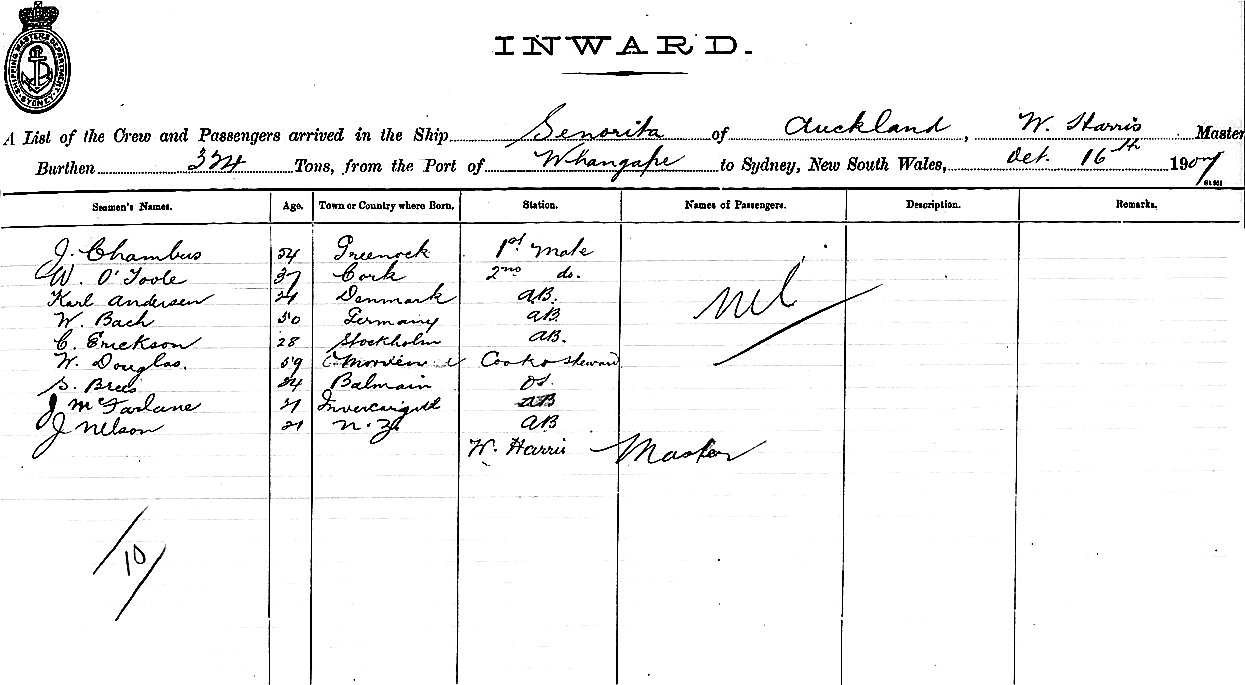 SHIPPING MASTER'S DEPARTMENT SYDNEY
INWARD.
A List of the Crew and Passengers arrived in the Ship Senorita of Auckland, W. Harris Master
Burthen 324 Tons, from the Port of Whangape to Sydney, New South Wales, Oct. 16th 1907
Seamen's Names. Age. Town or Country where Born. Station. Names of Passengers. Description. Remarks.
J. Chambers 54 Greenock 1st Mate
W. O'Toole 37 Cork 2nd do.
Karl Andersen Denmark AB.
W. Bach 50 Germany AB
C. Erickson 28 Stockholm AB.
W. Douglas. 59 Cook & Steward
S. Brees Balmain OS.
J McFarlane 21 Invercargill AB
J Nelson 21 N.Z. AB
Nil
W. Harris Master
10